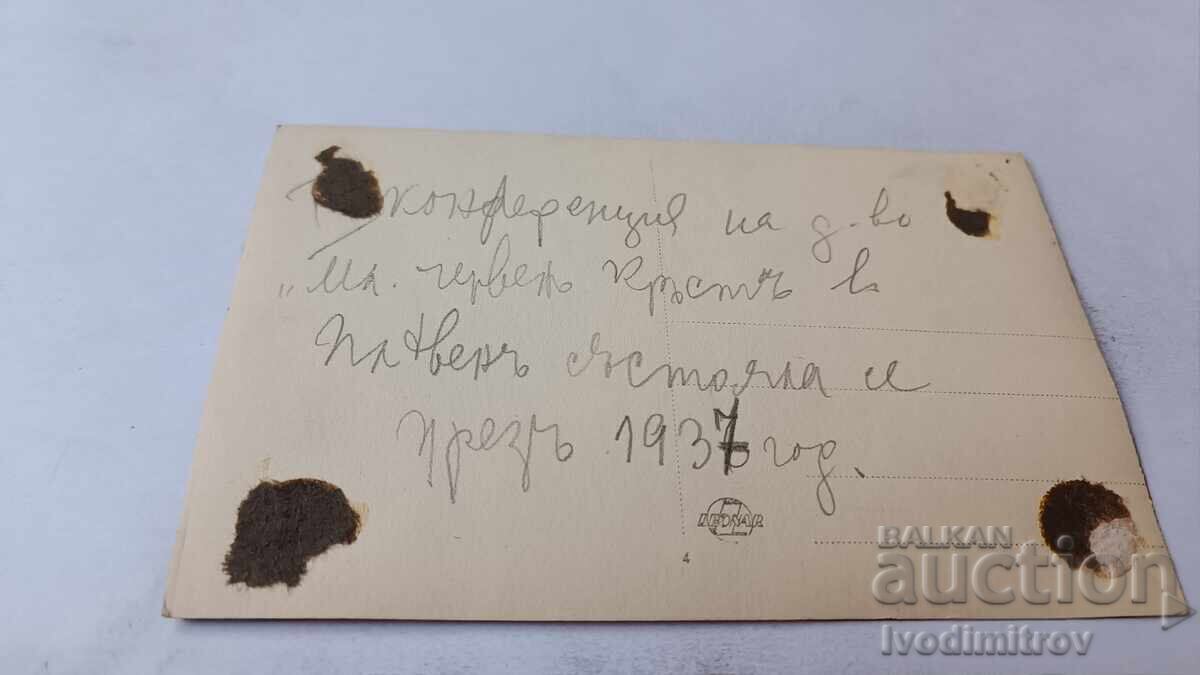 конференция на д-во
"Мл. червенъ кръстъ в
Плѣвенъ състояла се
презъ 1937 год.
LEONAR
4
BALKAN
auction
Ivodimitrov